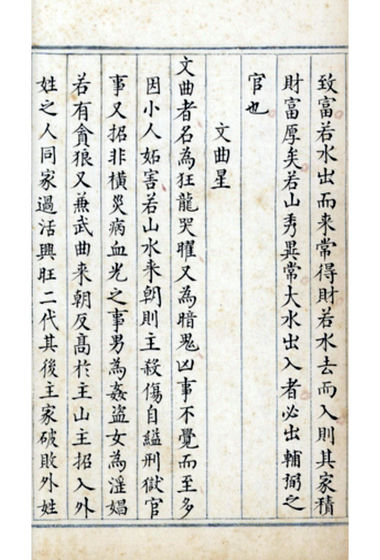 致富若水出而来常得財若水去而入則其家積
財富厚矣若山秀異常大水出入者必出輔弼之
官也
文曲星
文曲者名為狂龍哭曜又為暗鬼凶事不覺而至多
因小人妬害若山水来朝則主殺傷自縊刑獄官
事又招非横災病血光之事男為姦盗女為淫娼
若有貪狼又兼武曲来朝反髙扵主山主招入外
姓之人同家過活興旺二代其後主家破敗外姓